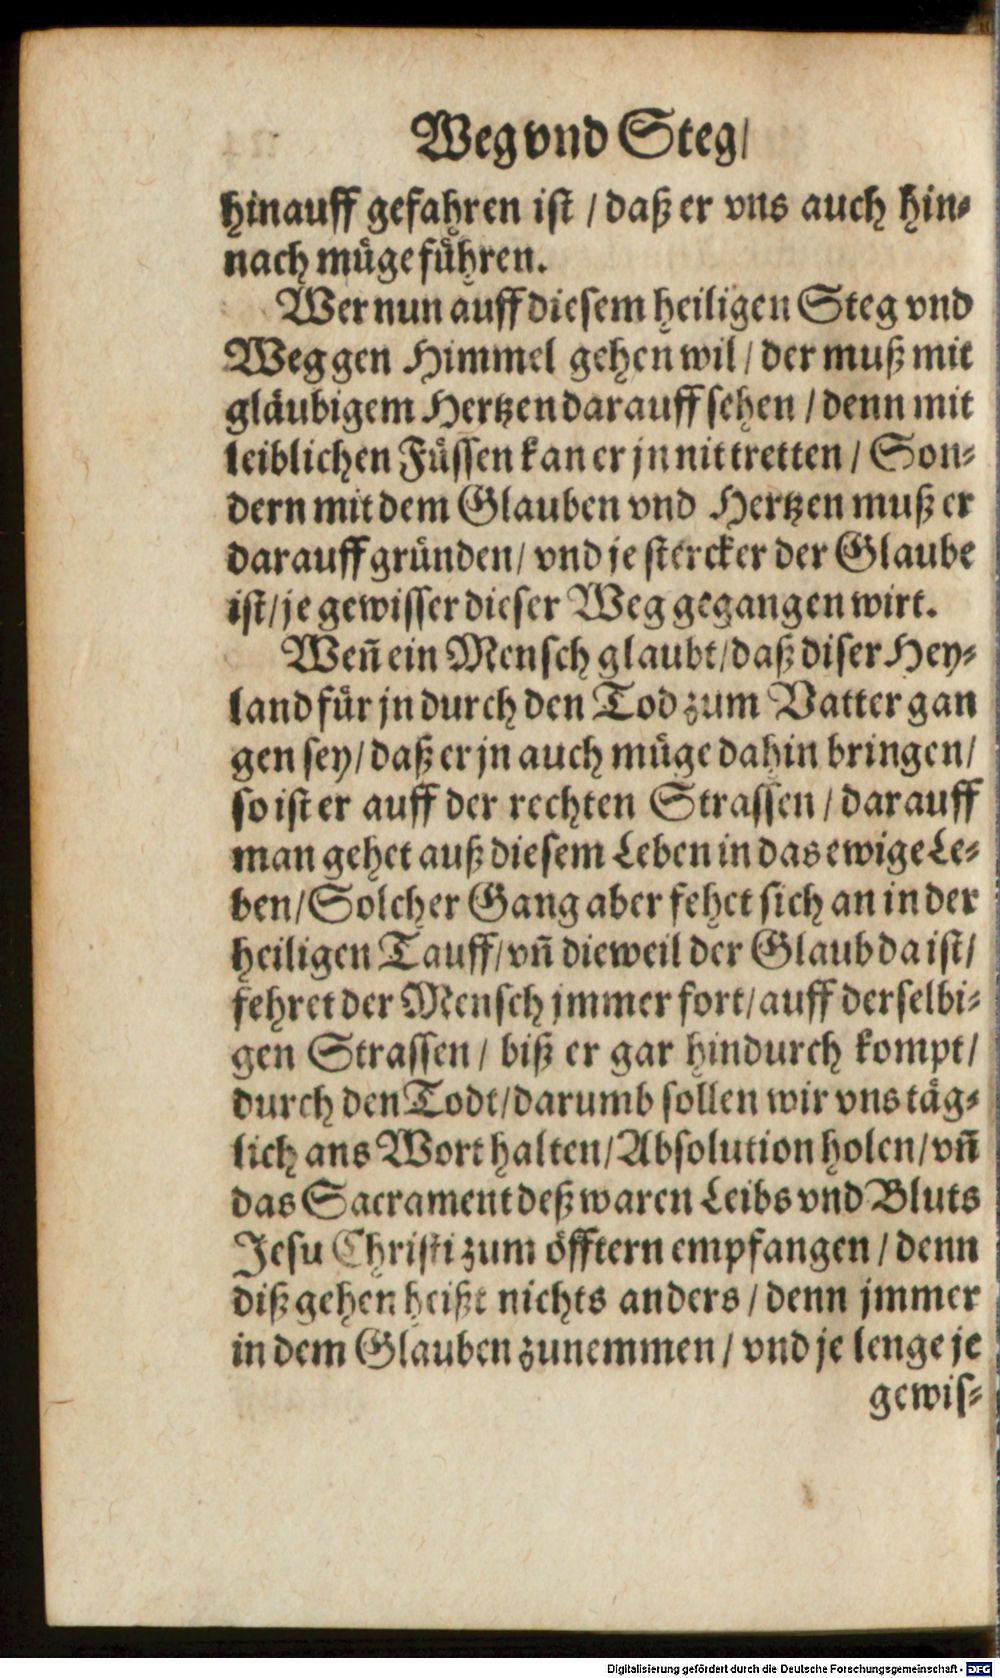 Weg vnd Steg/
hinauff gefahren ist / daß er vns auch hin⸗
nach müge führen.
Wer nun auff diesem heiligen Steg vnd
Weg gen Himmel gehen wil / der muß mit
gläubigem Hertzen darauff sehen / denn mit
leiblichen Füssen kan er jn nit tretten / Son⸗
dern mit dem Glauben vnd Hertzen muß er
darauff gründen / vnd je stercker der Glaube
ist / je gewisser dieser Weg gegangen wirt.
Weñ ein Mensch glaubt / daß diser Hey⸗
land für jn durch den Tod zum Vatter gan
gen sey / daß er jn auch müge dahin bringen /
so ist er auff der rechten Strassen / darauff
man gehet auß diesem Leben in das ewige Le⸗
ben / Solcher Gang aber fehet sich an in der
heiligen Tauff / vñ dieweil der Glaub da ist /
fehret der Mensch jmmer fort / auff derselbi⸗
gen Strassen / biß er gar hindurch kompt /
durch den Todt / darumb sollen wir vns täg⸗
lich ans Wort halten / Absolution holen / vñ
das Sacrament deß waren Leibs vnd Bluts
Jesu Christi zum öfftern empfangen / denn
diß gehen heißt nichts anders / denn jmmer
in dem Glauben zunemmen / vnd je lenge je
gewis⸗
Digitalisierung gefördert durch die Deutsche Forschungsgemeinschaft - DFG